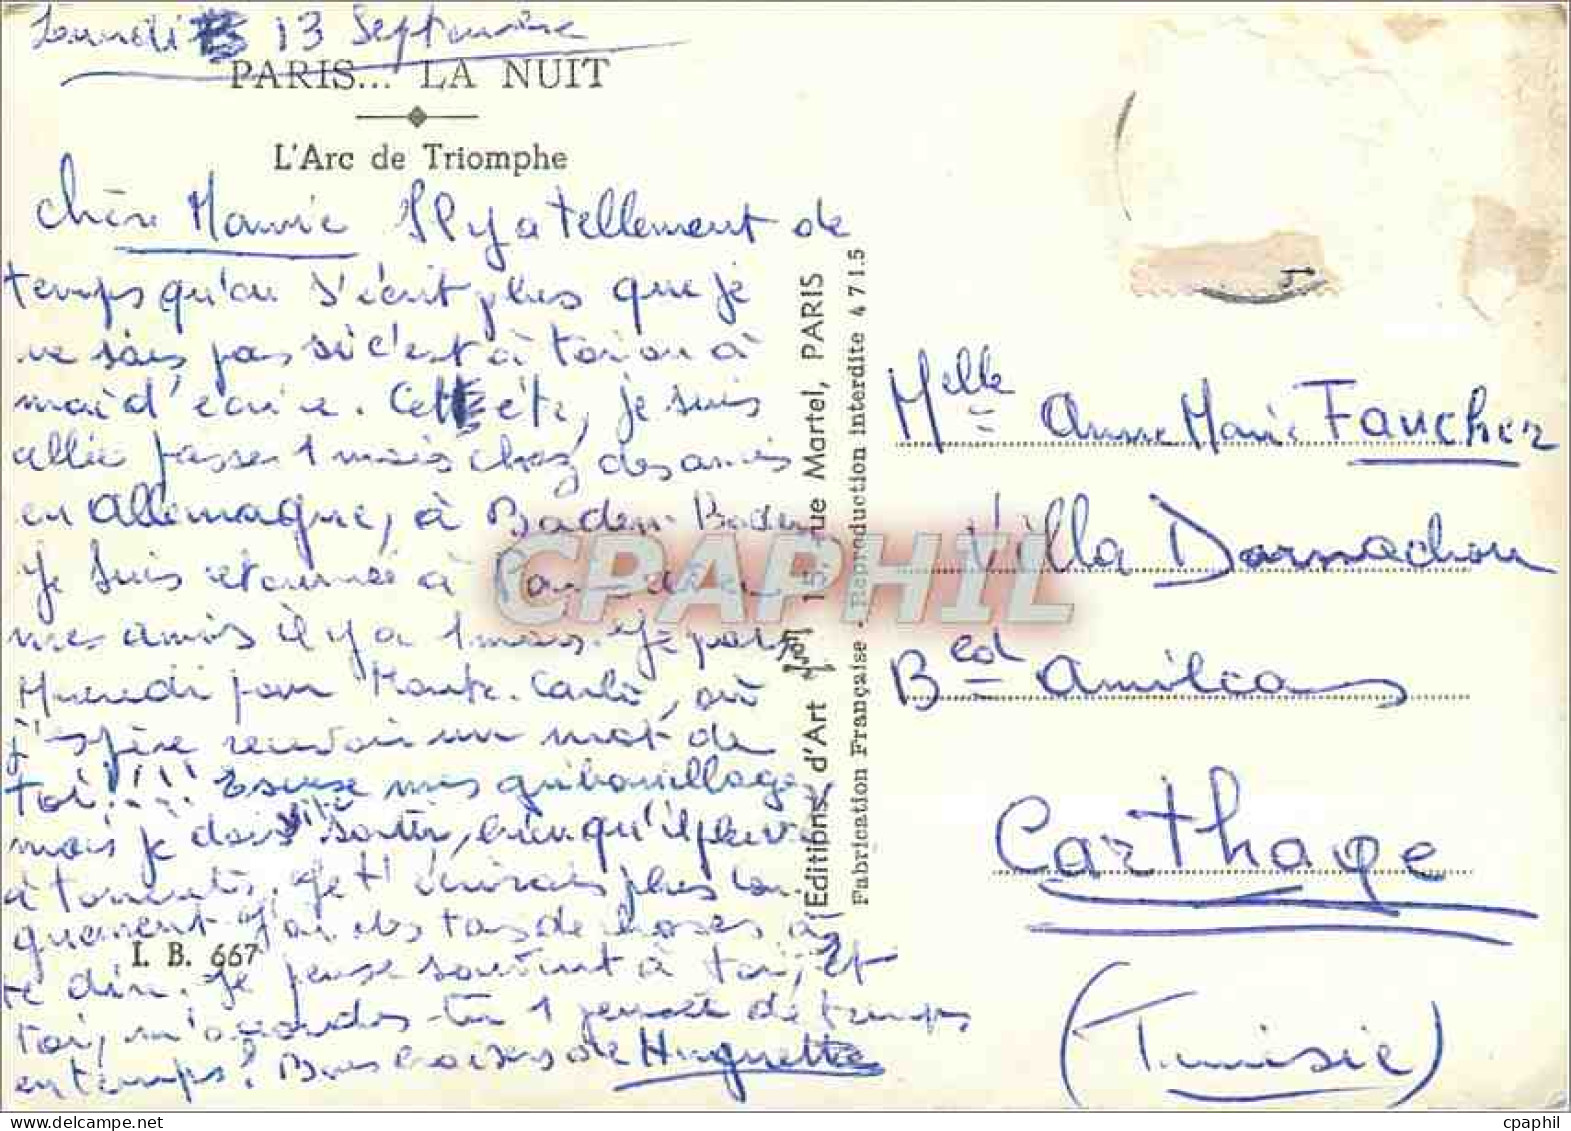 Lundi 13 Septembre
PARIS... LA NUIT
L'Arc de Triomphe
Chère Mannie Il y a tellement de
temps qu'on s'écrit plus que je
ne sais pas si c'est à toi ou à
moi d'écrire. Cet été, je suis
allée passer 1 mois chez des amis
en Allemagne, à Baden-Baden
Je suis retournée à Paris chez
mes amis il y a 1 mois. Je pars
Mercredi pour Monte-Carlo, où
j'espère recevoir un mot de
toi!!!! Excuse mes gribouillages
mais je dois vite sortir, bien qu'il pleuve
à torrents. Je t'écrirais plus lon-
guement j'ai des tas de choses à
te dire. Je pense souvent à toi, Et
toi, m'accordes-tu 1 pensée de temps
en temps? Bons baisers de Huguette
I. B. 667
Editions d'Art 15, rue Martel, PARIS
Fabrication Française - Reproduction interdite 4715
Melle Anne Marie Faucher
Villa Darnachou
Bed Amilcar
Carthage
(Tunisie)
CPAPHIL
cpaphil